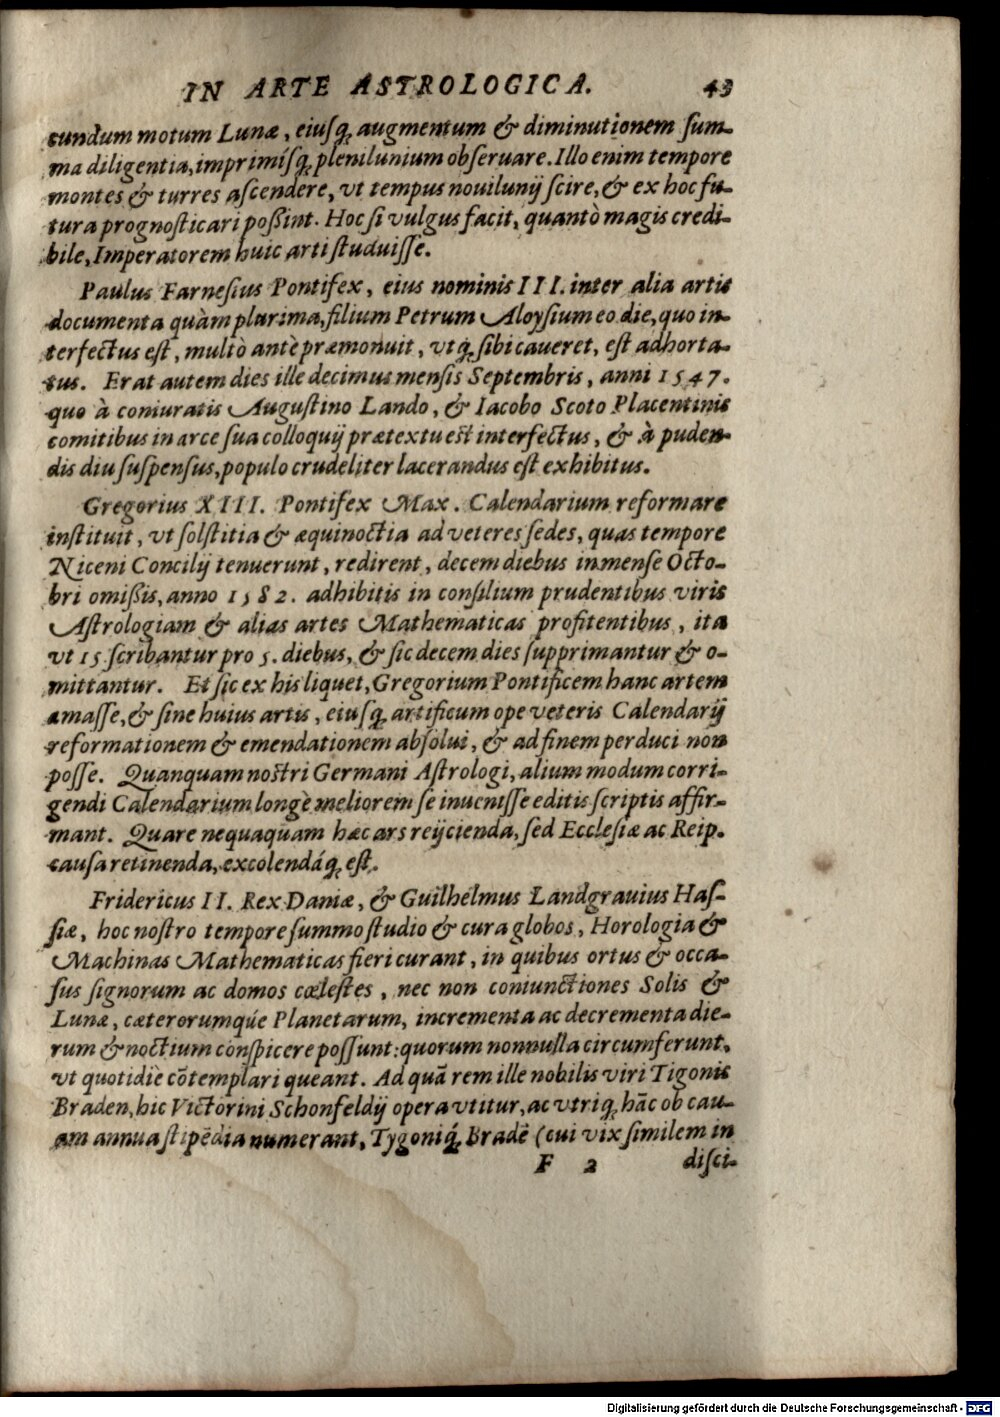 IN ARTE ASTROLOGICA. 43
cundum motum Lunæ, eiusq; augmentum & diminutionem sum-
ma diligentia, imprimísq; plenilunium obseruare. Illo enim tempore
montes & turres ascendere, vt tempus nouilunij scire, & ex hoc fu-
tura prognosticari poßint. Hoc si vulgus facit, quantò magis credi-
bile, Imperatorem huic arti studuisse.
Paulus Farnesius Pontifex, eius nominis III. inter alia artis
documenta quàm plurima, filium Petrum Aloysium eo die, quo in-
terfectus est, multò antè præmonuit, vtq; sibi caueret, est adhorta-
tus. Erat autem dies ille decimus mensis Septembris, anni 1547.
quo à coniuratis Augustino Lando, & Iacobo Scoto Placentinis
comitibus in arce sua colloquij prætextu est interfectus, & à puden-
dis diu suspensus, populo crudeliter lacerandus est exhibitus.
Gregorius XIII. Pontifex Max. Calendarium reformare
instituit, vt solstitia & æquinoctia ad veteres sedes, quas tempore
Niceni Concilij tenuerunt, redirent, decem diebus in mense Octo-
bri omißis, anno 1582. adhibitis in consilium prudentibus viris
Astrologiam & alias artes Mathematicas profitentibus, ita
vt 15 scribantur pro 5. diebus, & sic decem dies supprimantur & o-
mittantur. Et sic ex his liquet, Gregorium Pontificem hanc artem
amasse, & sine huius artis, eiusq; artificum ope veteris Calendarij
reformationem & emendationem absolui, & ad finem perduci non
posse. Quanquam nostri Germani Astrologi, alium modum corri-
gendi Calendarium longè meliorem se inuenisse editis scriptis affir-
mant. Quare nequaquam hæc ars reijcienda, sed Ecclesiæ ac Reip.
causa retinenda, excolendáq; est.
Fridericus II. Rex Daniæ, & Guilhelmus Landgrauius Has-
siæ, hoc nostro tempore summo studio & cura globos, Horologia &
Machinas Mathematicas fieri curant, in quibus ortus & occa-
sus signorum ac domos cœlestes, nec non coniunctiones Solis &
Lunæ, cæterorumqúe Planetarum, incrementa ac decrementa die-
rum & noctium conspicere possunt: quorum nonnulla circumferunt,
vt quotidiè cõtemplari queant. Ad quã rem ille nobilis viri Tigonis
Braden, hic Victorini Schonfeldij opera vtitur, ac vtriq; hãc ob cau-
am annua stipēdia numerant, Tygoniq́; Bradē (cui vix similem in
F 2 disci-
Digitalisierung gefördert durch die Deutsche Forschungsgemeinschaft - DFG